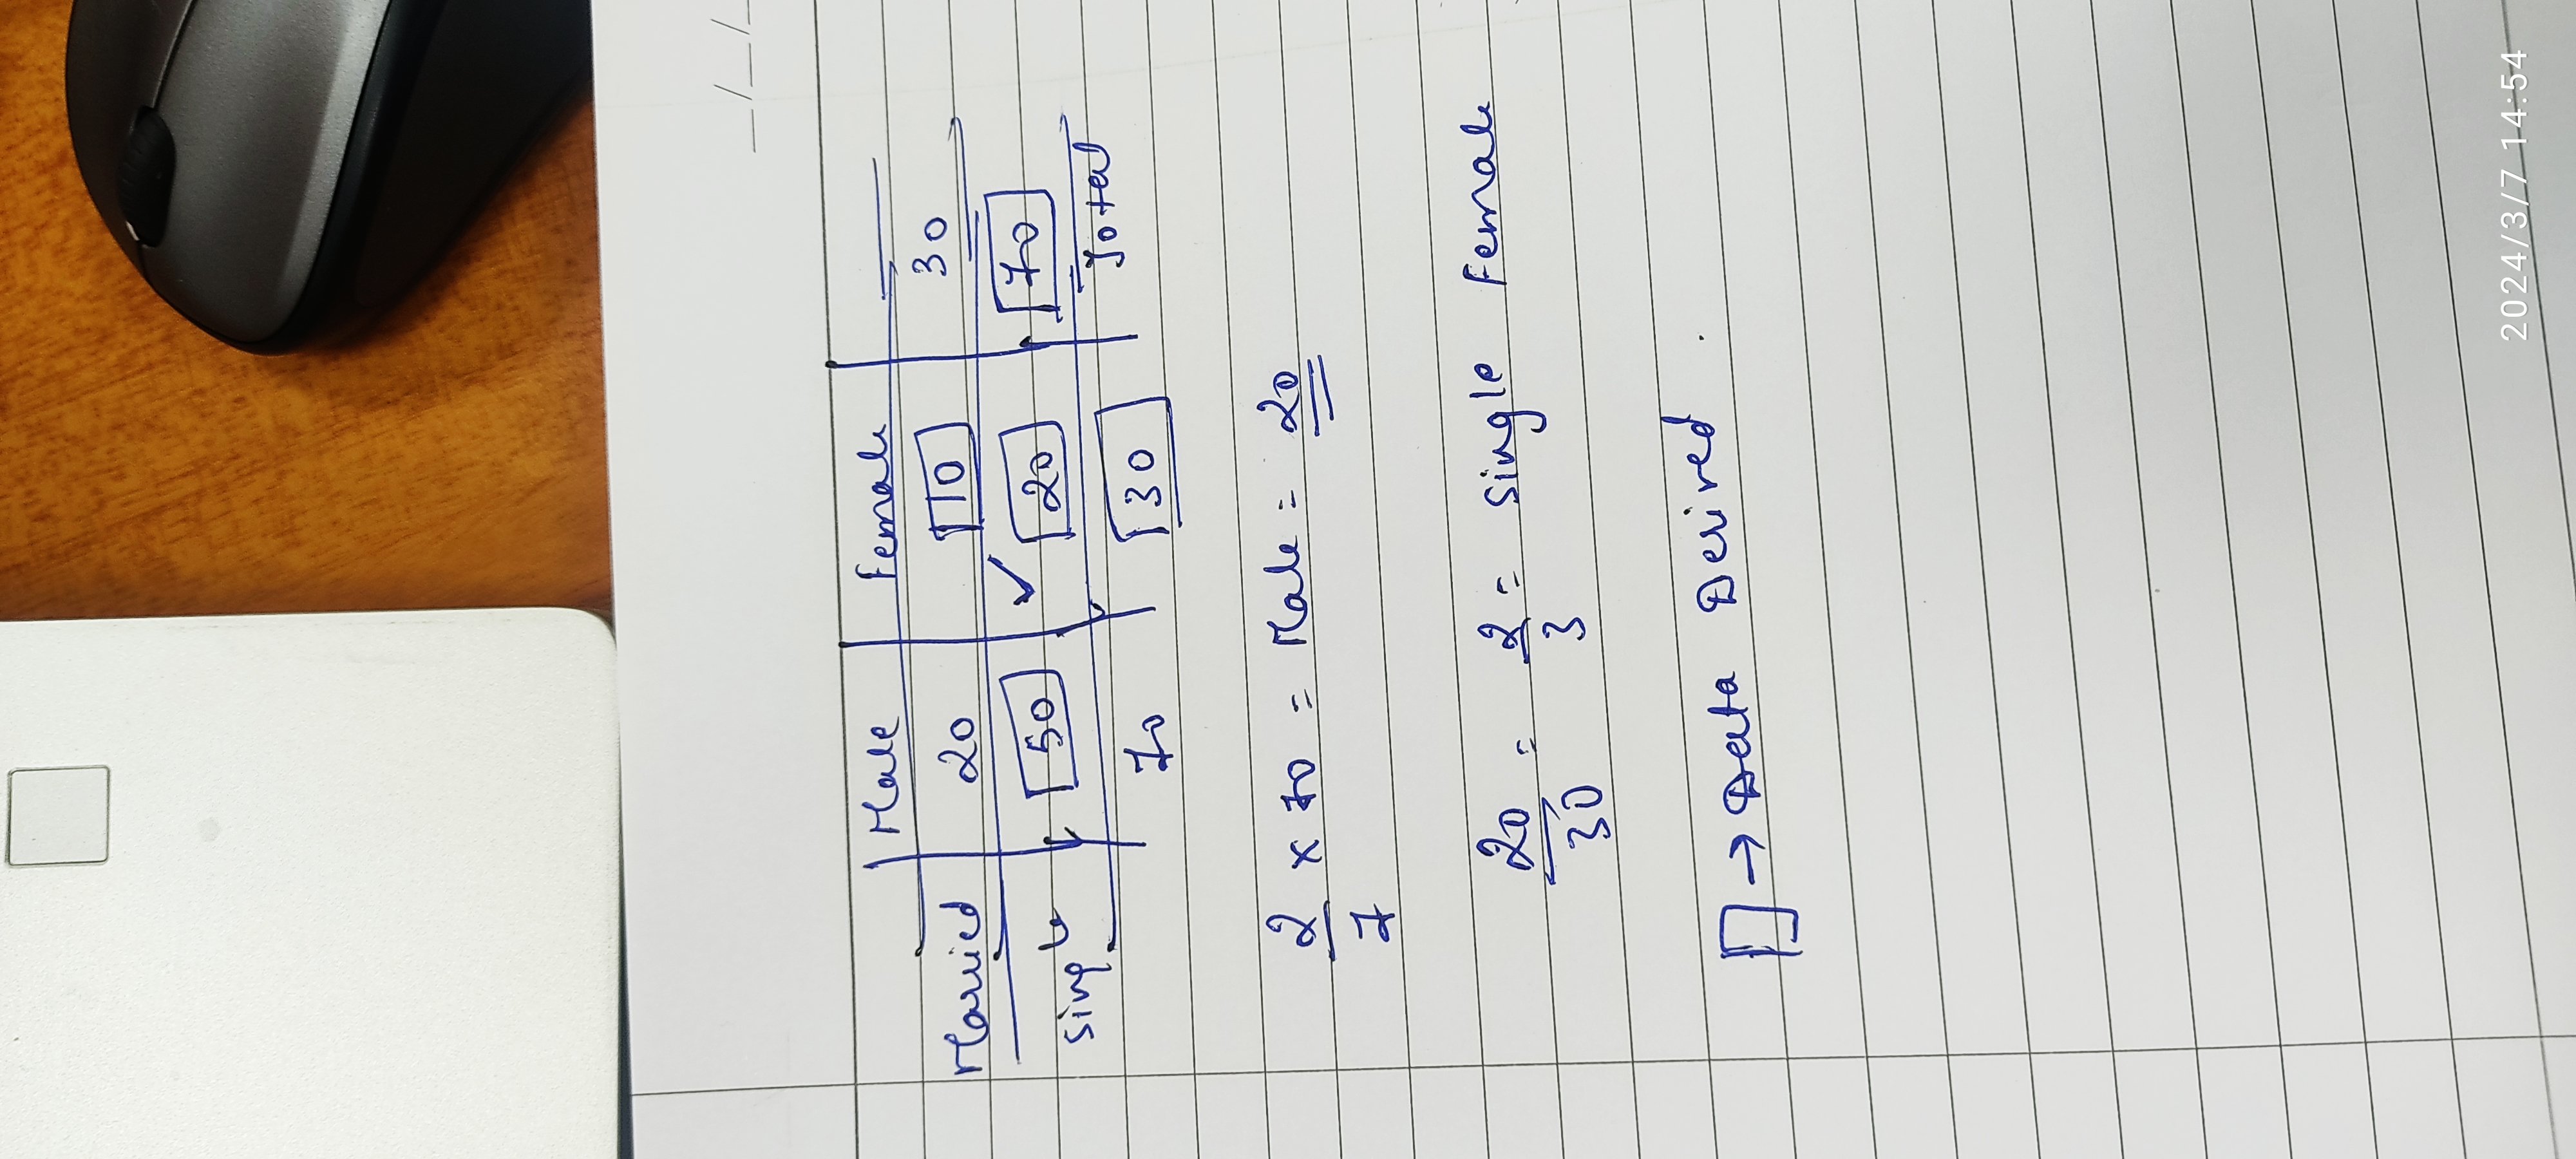 __/__/__
Male Female
Married 20 10 30
Single 50 ✓ 20 70
70 30 Total
2/7 x 70 = Male = 20
20/30 = 2/3 = Single Female
→ Data Derived.
2024/3/7 14:54